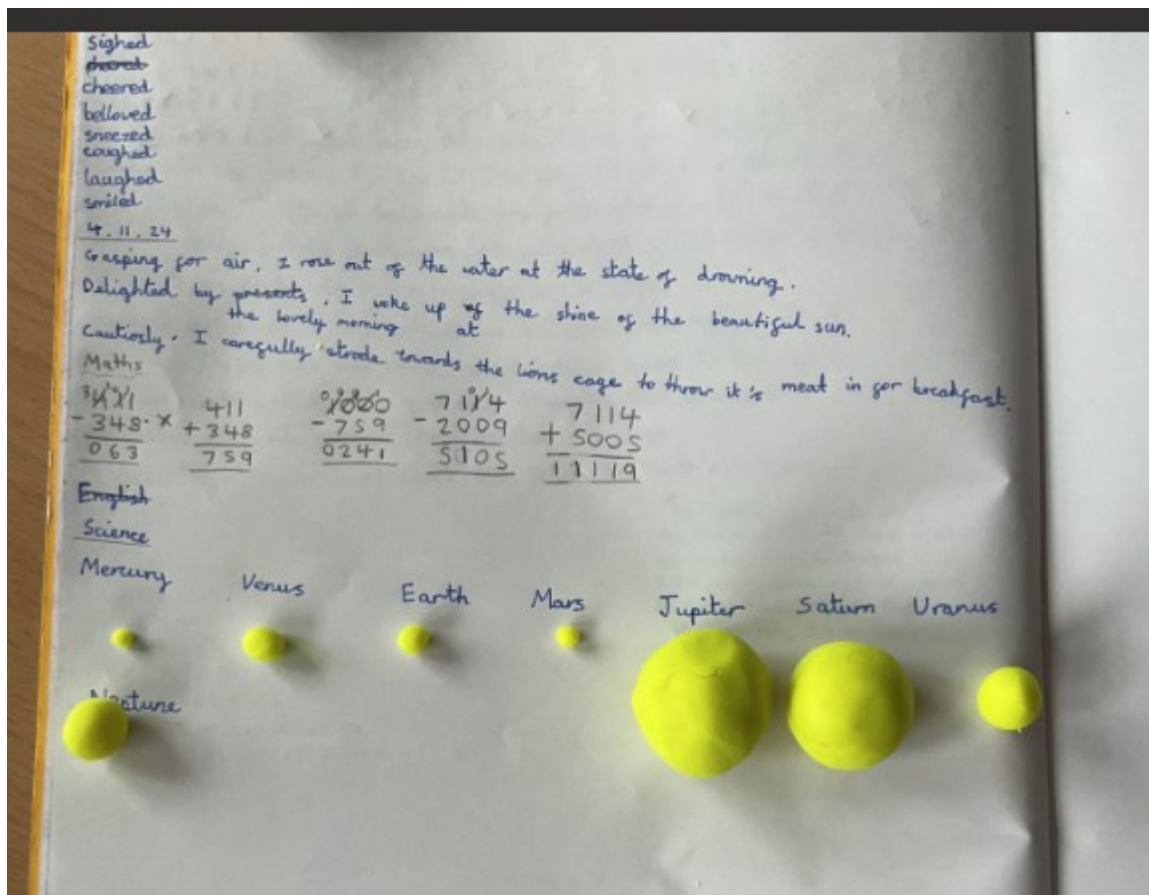 sighed
cheered
cheered
belloved
sneezed
coughed
laughed
smiled
4.11.24
Gasping for air, I rose out of the water at the state of drowning.
Delighted by presents, I woke up of the shine of the beautiful sun.
the lovely morning at
Cautiosly, I carefully strode towards the lions cage to throw it's meat in for breakfast.
Maths
411 411 1000 7114 7114
- 348. x + 348 - 759 - 2009 + 5005
063 759 0241 5105 11119
English
Science
Mercury Venus Earth Mars Jupiter Saturn Uranus
Neptune